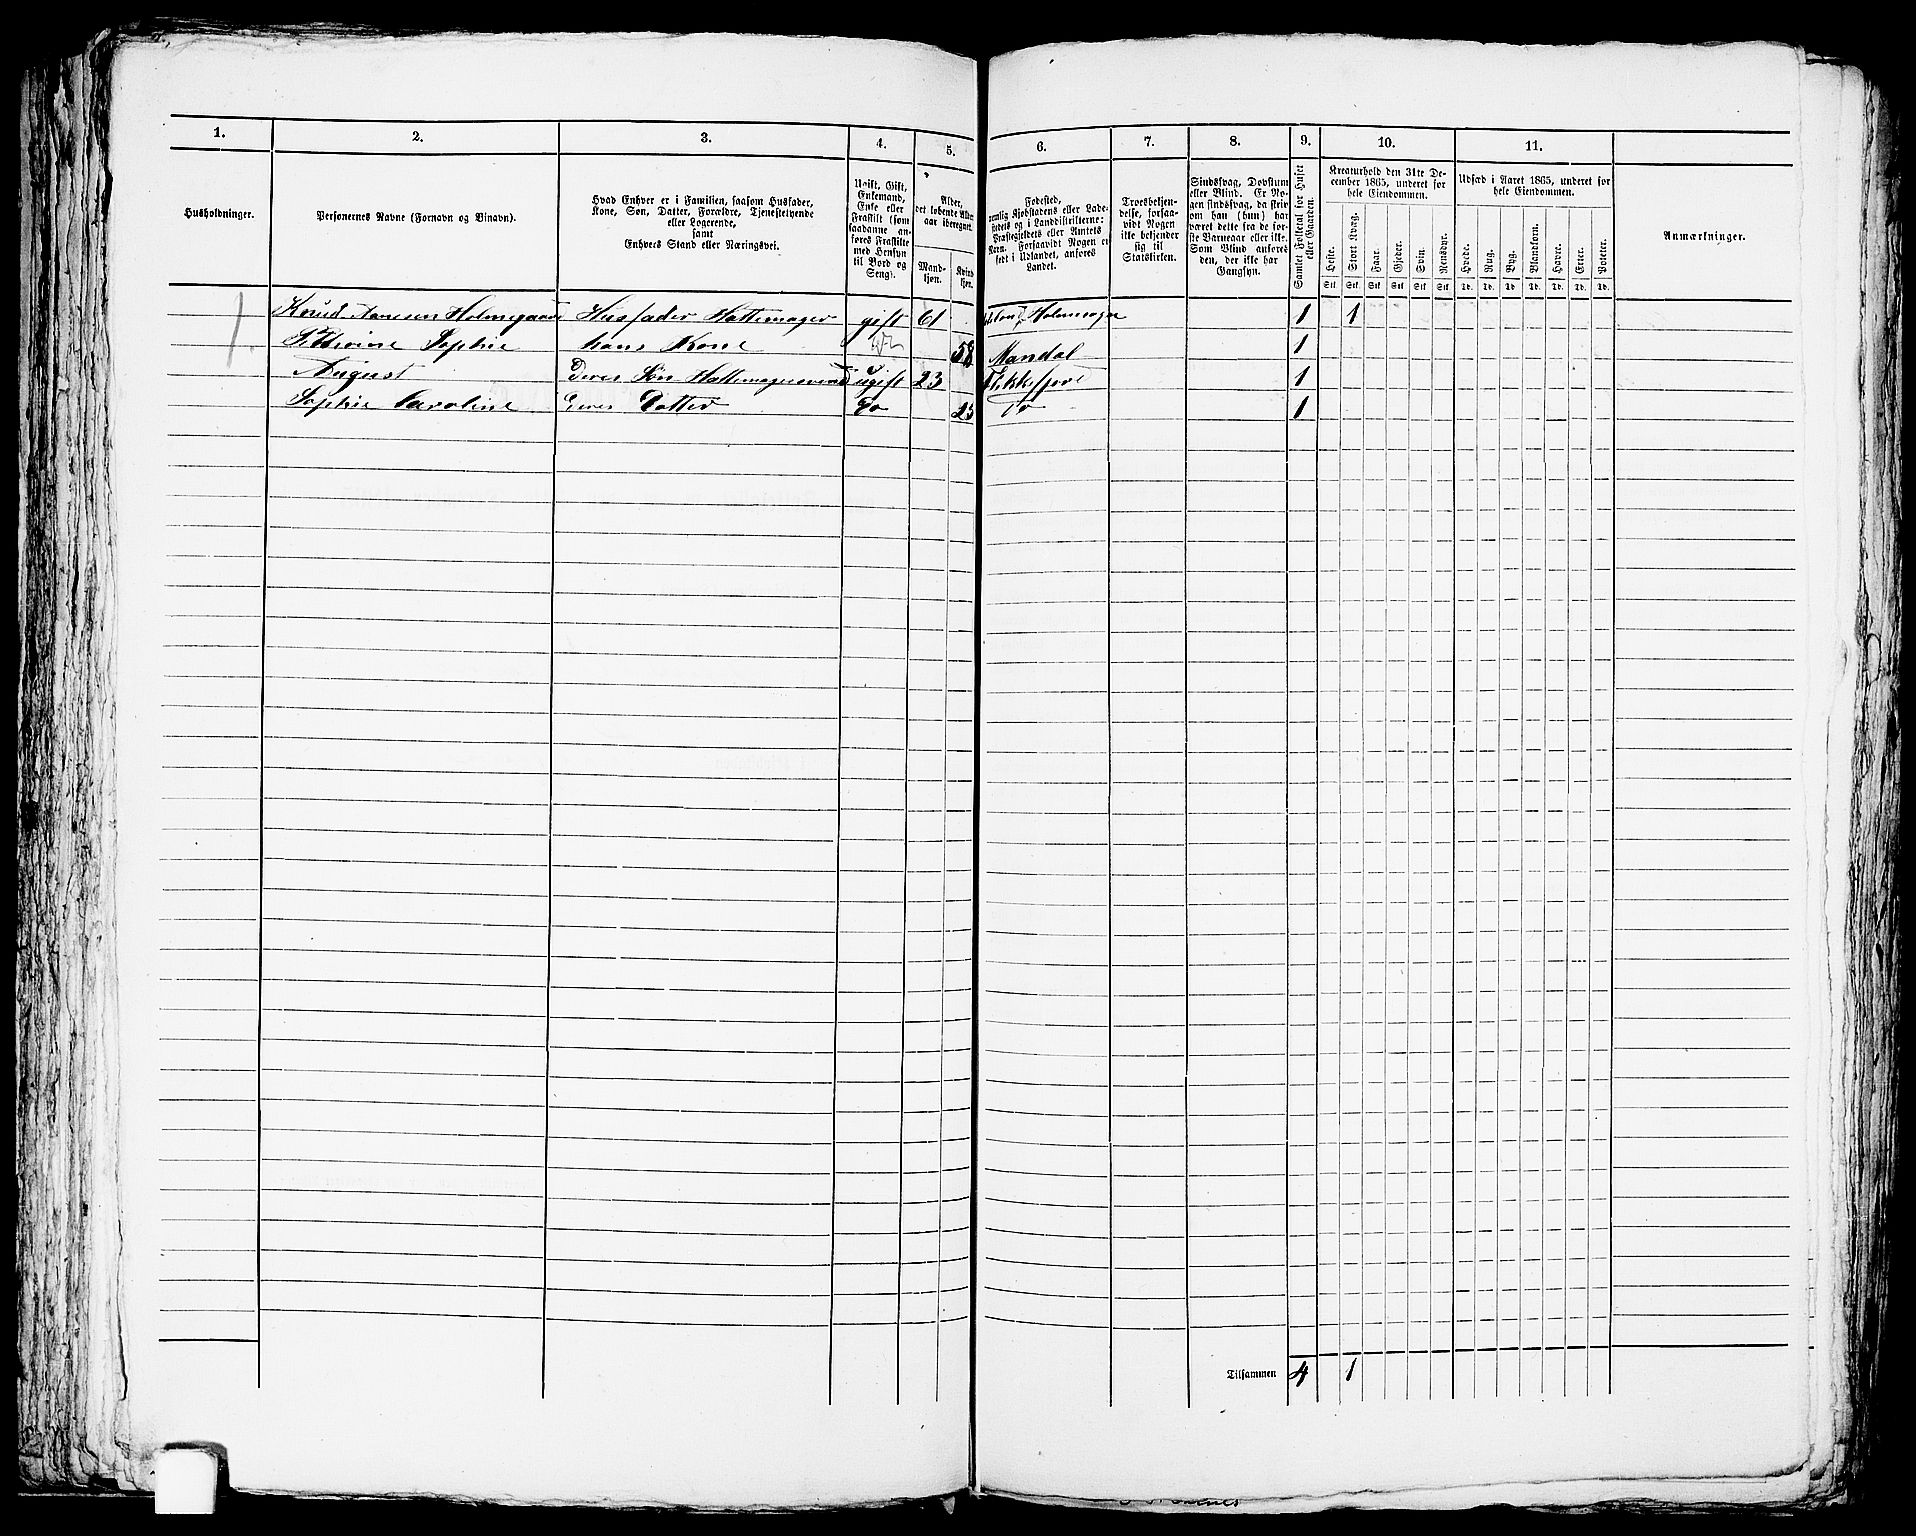 1. 2. 3. 4. 5. 6. 7. 8. 9. 10. 11.
Husholdninger.
Personernes Navne (Fornavn og Binavn).
Hvad Enhver er i Familien, saasom Husfader,
Kone, Søn, Datter, Forældre, Tjenestetyende
eller Logerende,
samt
Enhvers Stand eller Næringsvei.
Ugift, Gift,
Enkemand,
Enke eller
Fraskilt (som
saadanne an-
føres Fraskilte
med Hensyn
til Bord og
Seng).
Alder,
det løbende Alders-
aar iberegnet.
Mand-
kjøn.
Kvind
kjøn.
Fødested,
nemlig Kjøbstadens eller Lade-
stedets og i Landdistrikterne:
Præstegjeldets eller Amtets
Navn. Forsaavidt Nogen er
født i Udlandet, anføres
Landet.
Troesbekjen-
delse, forsaa-
vidt Nogen
ikke bekjender
sig til
Statskirken.
Sindssvag, Døvstum
eller Blind. Er No-
gen sindssvag, da skriv
om han (hun) har
været dette fra de før-
ste Barneaar eller ikke.
Som Blind anføres
den, der ikke har
Gangsyn.
Samlet Folketal for Huset
eller Gaarden.
Kreaturhold den 31te De-
cember 1865, underet for
hele Eiendommen.
Heste. Stort Kvæg. Faar. Gjeder. Svin. Rensdyr.
Stk. Stk. Stk. Stk. Stk. Stk.
Udsæd i Aaret 1865, underet for
hele Eiendommen.
Hvede. Rug. Byg. Blandkorn. Havre. Erter. Poteter.
Td. Td. Td. Td. Td. Td. Td.
Anmærkninger.
1. Knud Aanesen Holmegaard Husfader Hattemager gift 61 1 1
Sophie hans Kone 58 Mandal 1
August Deres Søn ugift 23 Flekkefjord 1
Sophie Caroline Deres Datter Do 23 Do 1
Tilsammen 4 1